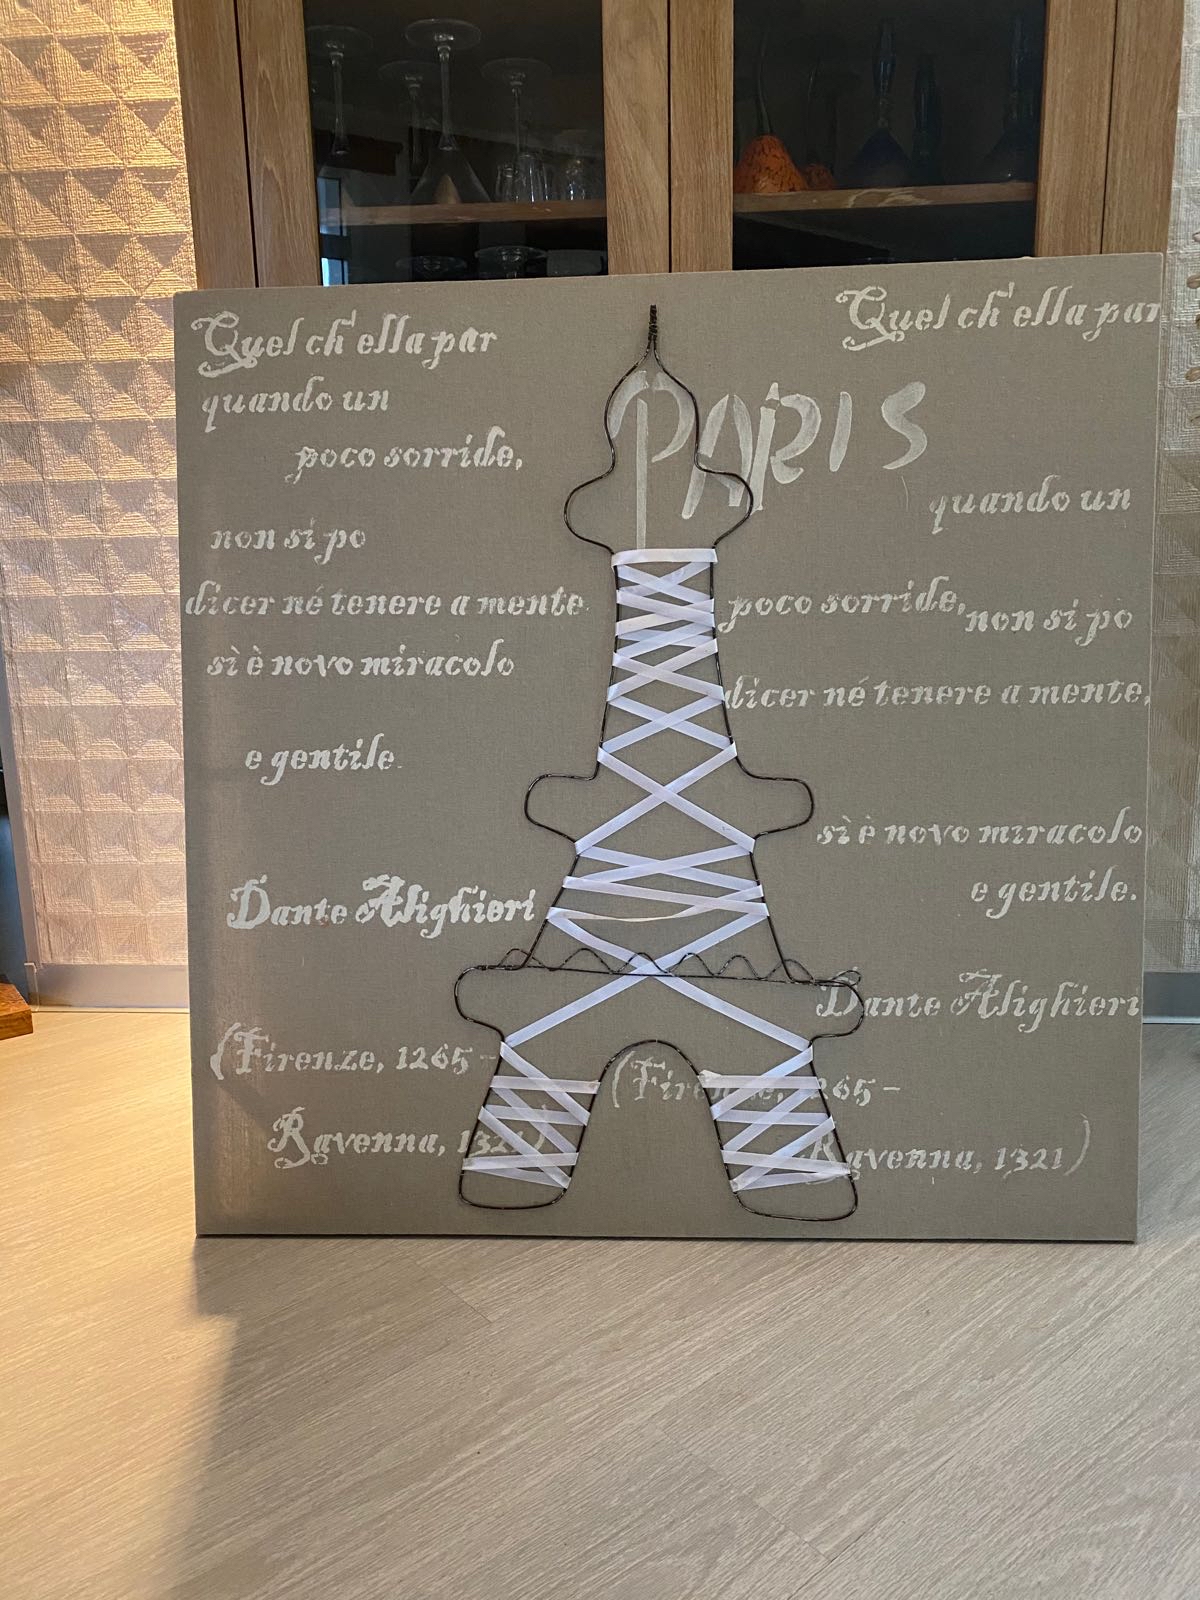 Quel ch'ella par
quando un
poco sorride,
non si po
dicer né tenere a mente
sì è novo miracolo
e gentile.
Dante Alighieri
(Firenze, 1265-
Ravenna, 1321)
PARIS
Quel ch'ella par
quando un
poco sorride,
non si pò
dicer né tenere a mente,
sì è novo miracolo
e gentile.
Dante Alighieri
(Firenze, 1265-
Ravenna, 1321)